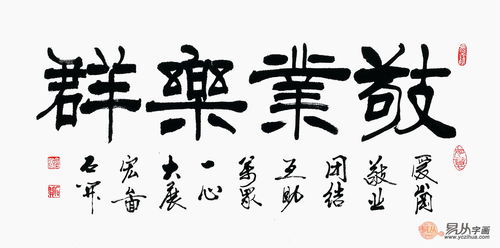 敬業樂群
爱崗
敬业
团结
互助
萬眾
一心
大展
宏图
石开
易从字画
www.yczihua.com